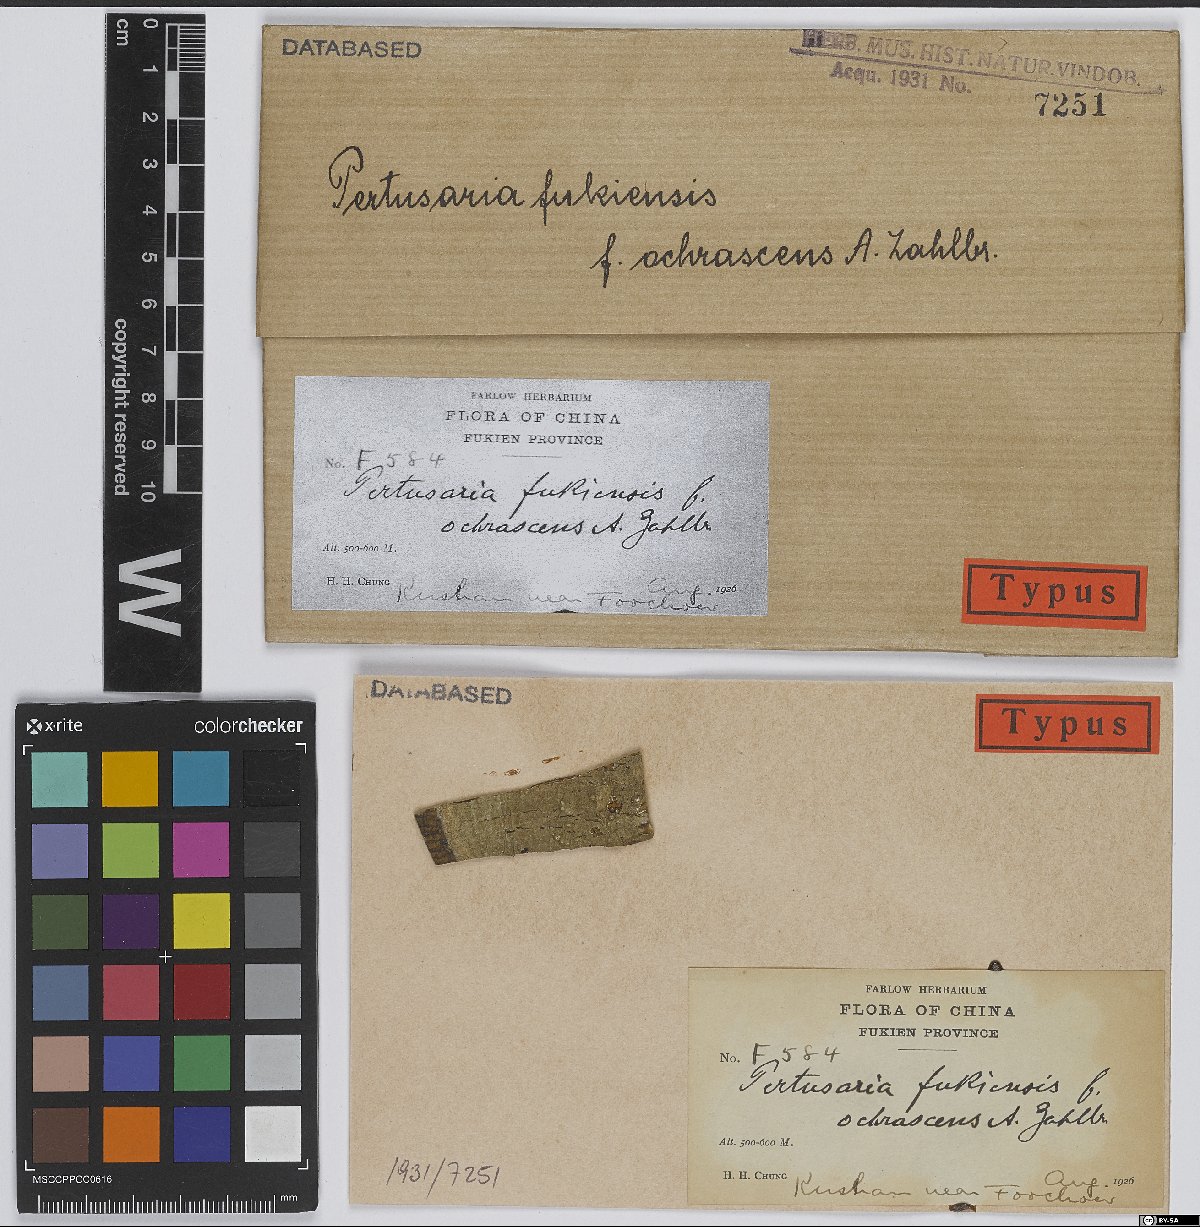 0
cm
1
2
3
4
5
6
7
8
9
10
copyright reserved
W
DATABASED
HERB. MUS. HIST. NATUR. VINDOB.
Acqu. 1931 No.
7251
Pertusaria fukiensis
f. ochrascens A. Zahlbr.
FARLOW HERBARIUM
FLORA OF CHINA
FUKIEN PROVINCE
No. F 584
Pertusaria fukiensis f.
ochrascens A. Zahlbr
Alt. 500-600 M.
H. H. CHUNG Aug. 1926
Kushan near Foochow
Typus
x·rite colorchecker
MSCCPPCC0616
mm
DATABASED
Typus
FARLOW HERBARIUM
FLORA OF CHINA
FUKIEN PROVINCE
No. F 584
Pertusaria fukiensis f.
ochrascens A. Zahlbr
Alt. 500-600 M.
H. H. CHUNG Aug. 1926
Kushan near Foochow
1931/7251
cc BY-SA